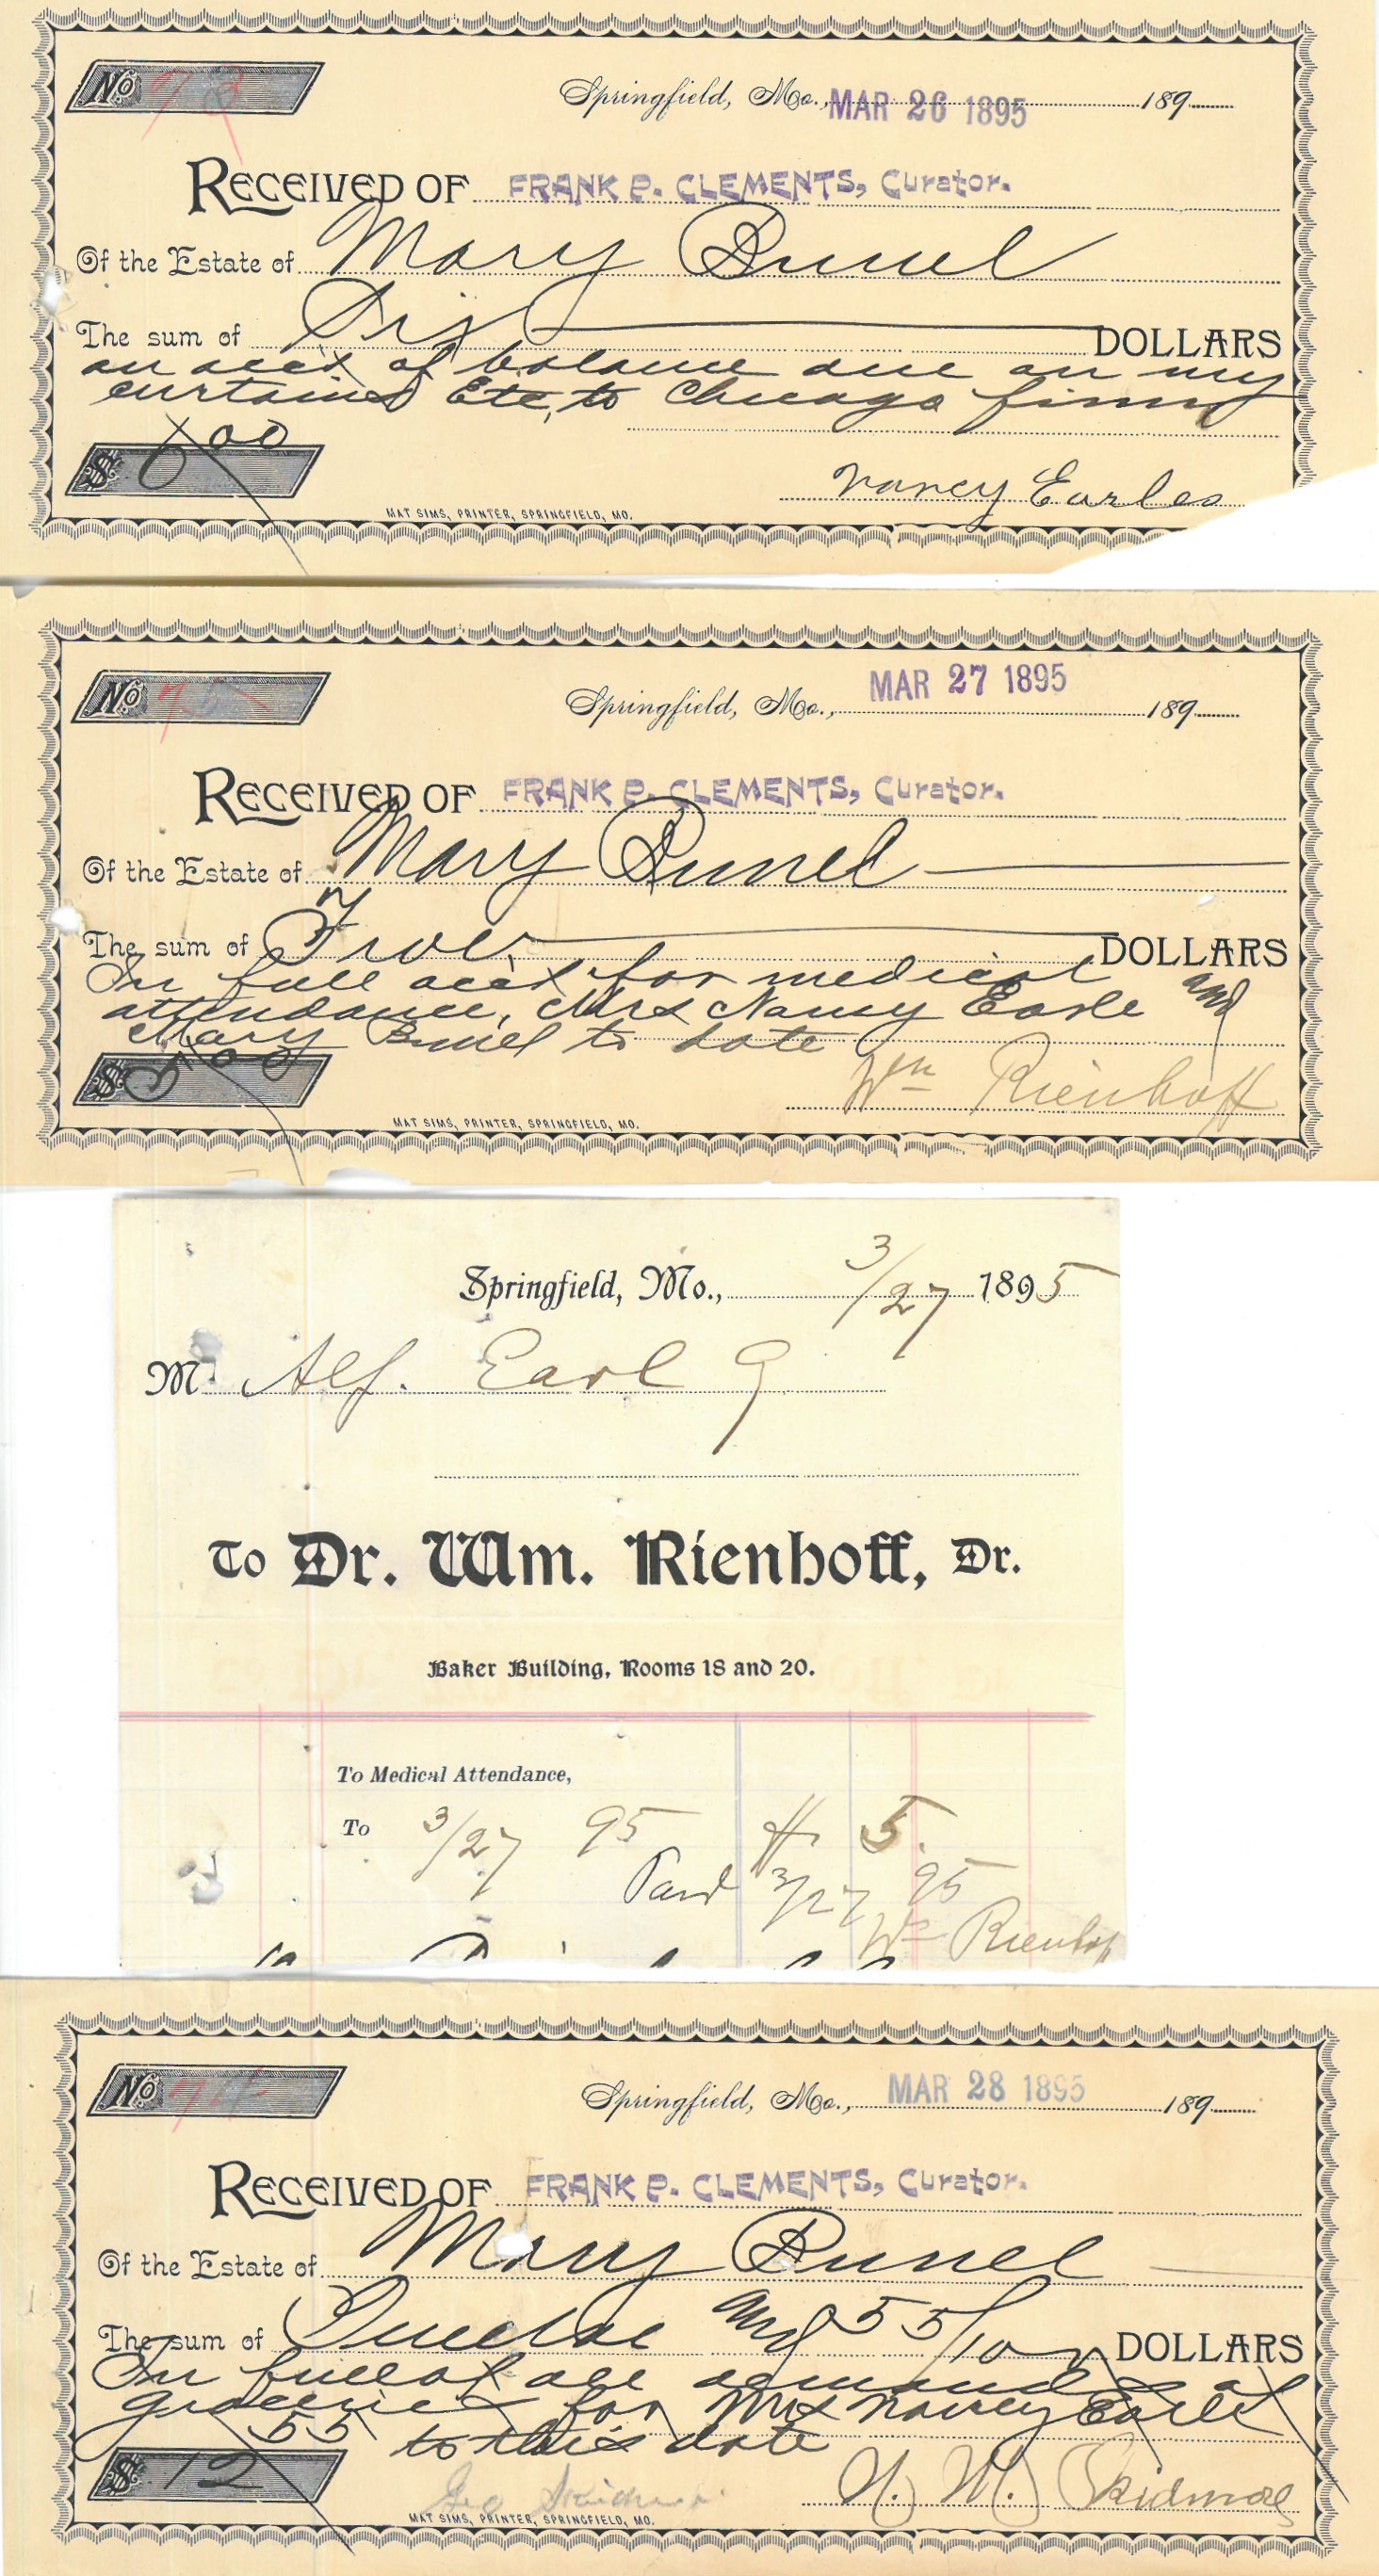 No 73
Springfield, Mo., MAR 26 1895 189
RECEIVED OF FRANK P. CLEMENTS, Curator.
Of the Estate of Mary Bunel
The sum of Six DOLLARS
on acct of balance due on my
curtains Etc, to Chicago firm
$ 6 00
Nancy Earles
MAT SIMS, PRINTER, SPRINGFIELD, MO.
No 75
Springfield, Mo., MAR 27 1895 189
RECEIVED OF FRANK P. CLEMENTS, Curator.
Of the Estate of Mary Bunel
The sum of Five DOLLARS
In full acct for medical
attendance, Mrs Nancy Earle and
Mary Bunel to date
$ 5 00
Wm Rienhoff
MAT SIMS, PRINTER, SPRINGFIELD, MO.
Springfield, Mo., 3/27 1895
M Alf. Earl
To Dr. Wm. Rienhoff, Dr.
Baker Building, Rooms 18 and 20.
To Medical Attendance,
To 3/27 95 $ 5.
Paid 3/27 95
Wm Rienhoff
No 74
Springfield, Mo., MAR 28 1895 189
RECEIVED OF FRANK P. CLEMENTS, Curator.
Of the Estate of Mary Bunel
The sum of Twelve and 55/100 DOLLARS
In full of all demands
groceries for Mrs Nancy Earle
to this date
$ 12 55
N. M. Skidmore
Geo Skidmore
MAT SIMS, PRINTER, SPRINGFIELD, MO.